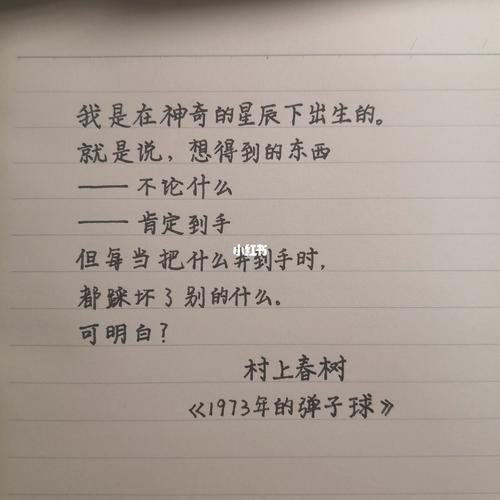 我是在神奇的星辰下出生的。
就是说，想得到的东西
—— 不论什么
—— 肯定到手
但每当把什么弄到手时，
都踩坏了别的什么。
可明白？
村上春树
《1973年的弹子球》
小红书